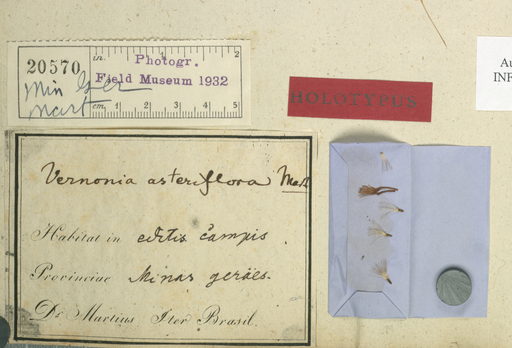 20570
in. 1 2
Photogr.
Field Museum 1932
Mart
cm. 1 2 3 4 5
HOLOTYPUS
Au
INF
Vernonia asteriflora Mart
Habitat in editis campis.
Provinciae Minas geräes.
Dr Martius Iter Brasil.